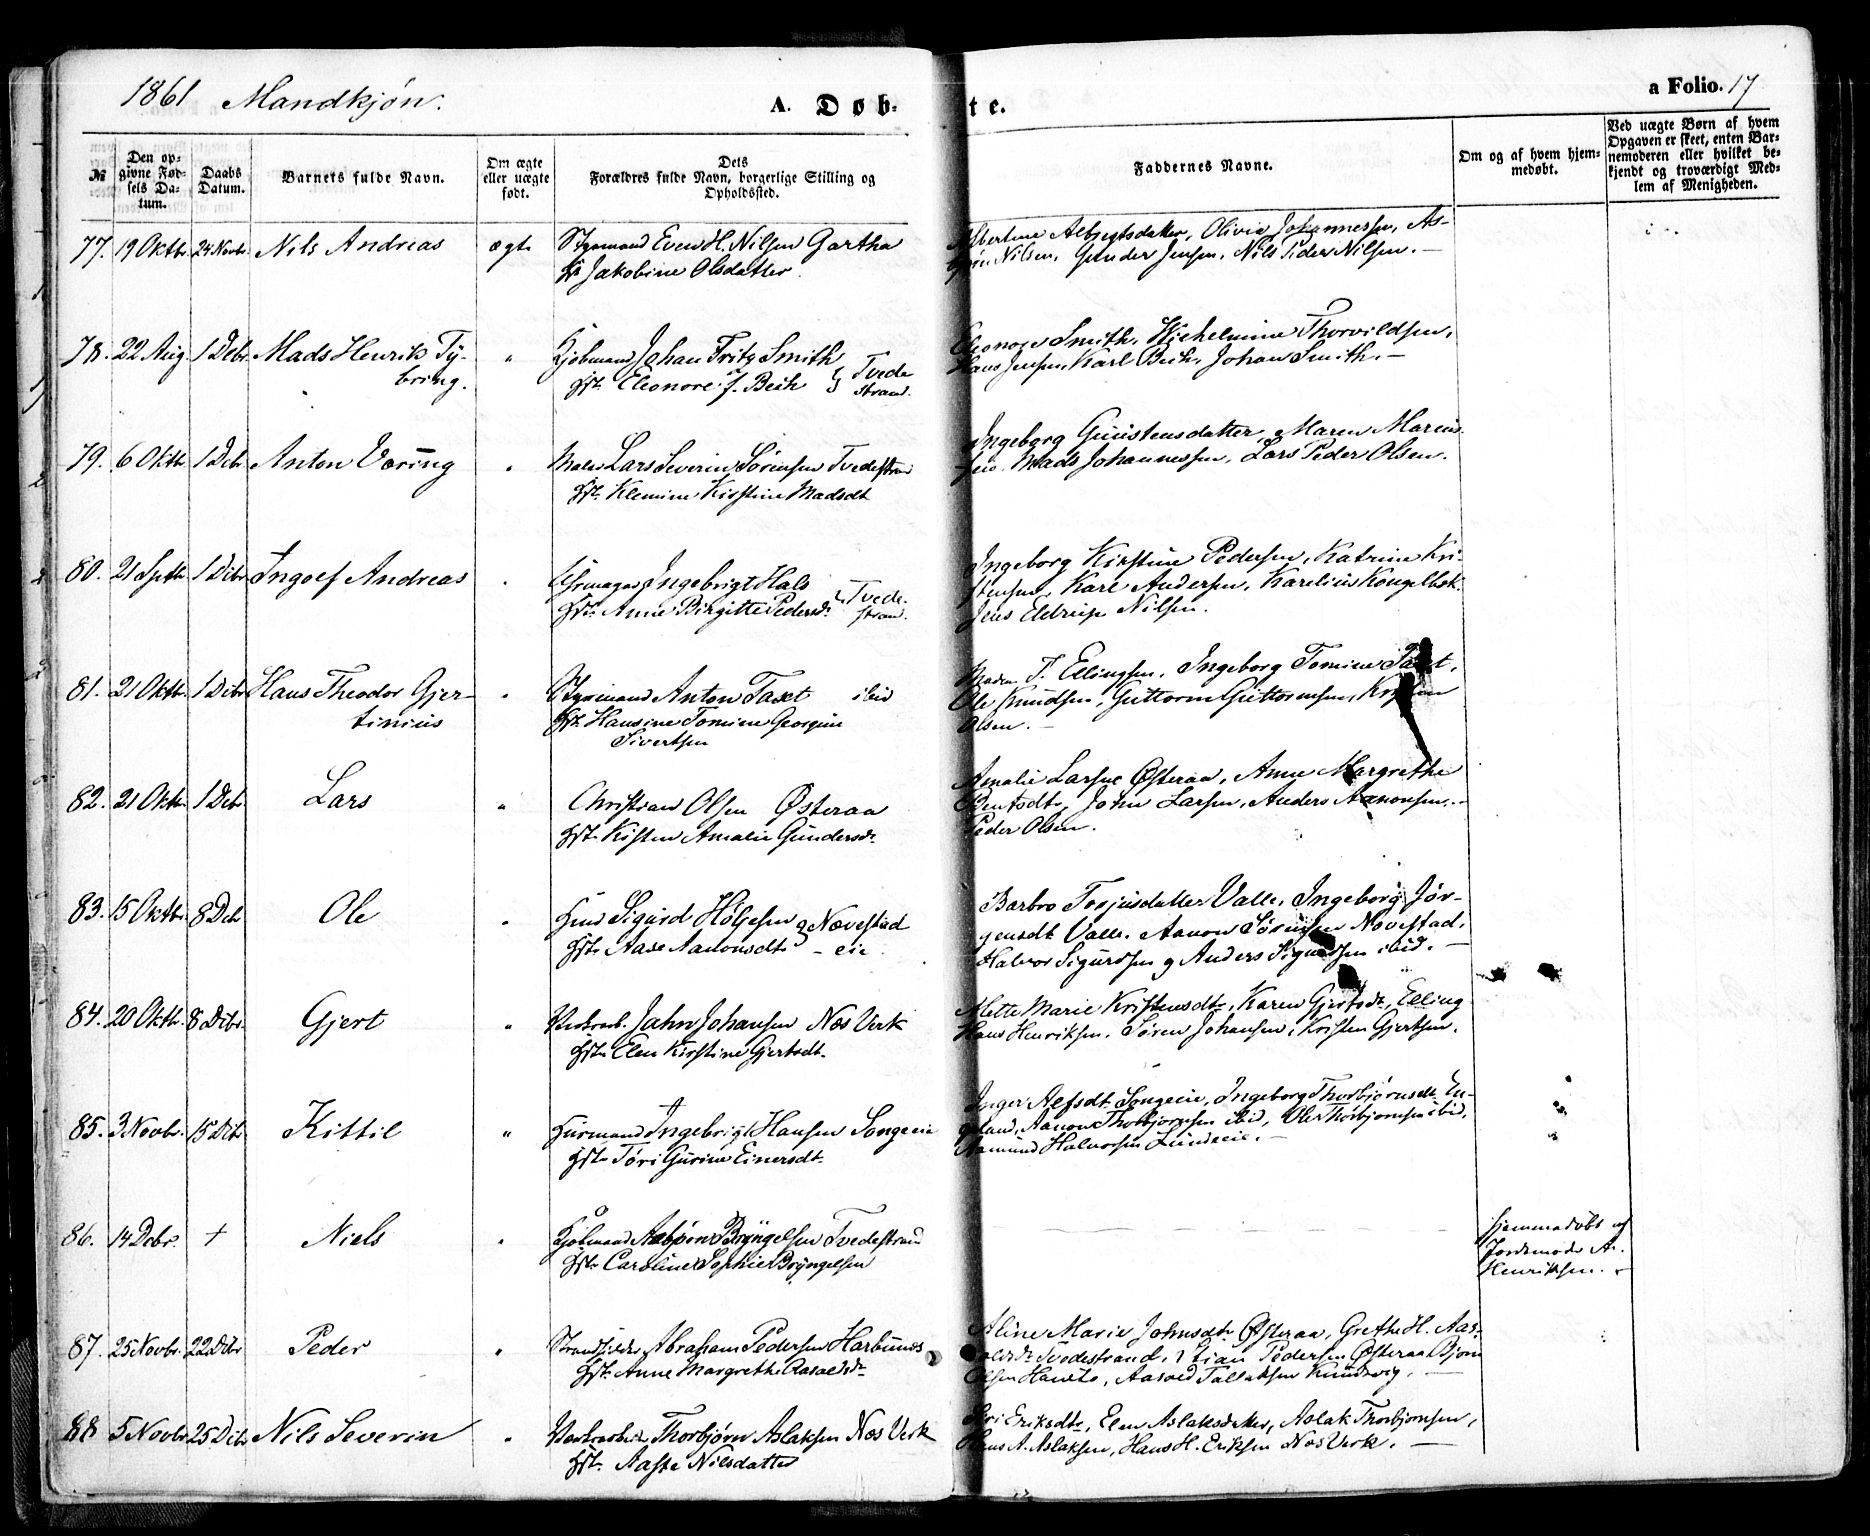 1861 Mandkjøn.
A. Døbte.
a Folio. 17
№
Den opgivne Fødsels Datum.
Daabs Datum.
Barnets fulde Navn.
Om ægte eller uægte født.
Dets Forældres fulde Navn, borgerlige Stilling og Opholdssted.
Faddernes Navne.
Om og af hvem hjemmedøbt.
Ved uægte Børn af hvem Opgaven er skeet, enten Barnemoderen eller hvilket bekjendt og troværdigt Medlem af Menigheden.
77. 19 Oktbr. 24 Novbr. Nils Andreas ægte Styrmand Even H. Nilsen Gartha
Jakobine Olsdatter.
Olivia Johannessen, As-
Nilsen, Gunder Jensen, Nils Peder Nilsen. —
78. 22 Aug 1 Debr Mads Henrik Ty-
bring.
" Kjøbmand Johan Fritz Smith
Hst. Eleonore f. Beck } Tvede
strand.
Eleonore Smith, Wilhelmine Thorvildsen,
Hans Jensen, Karl Beck, Johan Smith. —
79. 6 Oktb 1 Debr Anton Væring " Maler Lars Severin Sørensen Tvedestrand
Hst. Klemine Kirstine Madsdt
Ingeborg Guustensdatter, Maren Marcus
sen. Mads Johannessen, Lars Peder Olsen.
80. 21 Septb 1 Debr Ingolf Andreas " Uhrmager Ingebrigt Hals
Hst. Anne Birgitte Pedersdt } Tvede-
strand.
Ingeborg Kirstine Pedersen, Katrine Kri-
stensen, Karl Andersen, Karelius
Jens Eldrup Nilsen.
81. 21 Oktb 1 Debr Hans Theodor Gjer-
tinius
" Styrmand Anton Taxt ibid
Hst. Hansine Tomine Georgine
Sivertsen
Madm T. Ellingsen, Ingeborg Tomine Taxt,
Ole Knudsen, Guttorm Guttormsen,
Olsen. —
82. 21 Oktb 1 Debr Lars " Christian Olsen Østeraa
Hst. Kisten Amalie Gundersdt
Amalie Larsne Østeraa, Anne Margrethe
Bentsdt, John Larsen, Anders Aanonsen, —
Peder Olsen.
83. 15 Oktbr. 8 Debr Ole " Sigurd Holjesen
Hst. Aase Aanonsdt } Nævestad
– eie.
Barbro Terjusdatter Valle, Ingeborg Jør-
gensdt Valle, Aanon Sørensen Novestad,
Halvor Sigurdsen og Anders Sigurdsen ibid. —
84. 20 Oktb. 8 Debr. Gjert " Verksarb. Jahn Johansen Næs Verk
Hst. Elen Kirstine Gjertsdt.
Mette Marie Kristensdt, Karen Gjertsdt, Elling
Hans Henriksen, Søren Johansen, Kristen Gjertsen.
85. 3 Novbr. 15 Debr Kittil " Huusmand Ingebrigt Hansen Songeeie
Hst. Tori Gurine Einersdt.
Inger Alfsdt Songeeie, Ingeborg Thorbjørnsdt En-
geland, Aanon Thorbjørnsen ibid, Ole Thorbjørnsen ibid,
Aamund Halvorsen Lundeeie. —
86. 14 Debr. + Niels " Kjøbmand Aasbjørn Bryngelsen Tvedestrand
Hst. Caroline Sophie Bryngelsen
hjemmedøbt af
Jordemoder A.
Henriksen.
87. 25 Novbr. 22 Debr Peder " Strandsidder Abraham Pedersen
Hst. Anne Margrethe Aasvldsdt
Aline Marie Johnsdt Østeraa, Grethe H. Aas-
Tvedestrand, Stian Pedersen Østeraa, Bjørn
Olsen Hauto, Aasvld Tallaksen
88 5 Novbr 25 Debr Nils Severin " Verksarbeid. Thorbjørn Aslaksen Næs Verk
Hst. Aaste Nilsdatter
Siri Eriksdt, Elen Aslaksdatter, Aslak Thorbjørnsen,
Hans A. Aslaksen, Hans H. Eriksen Næs Verk. —